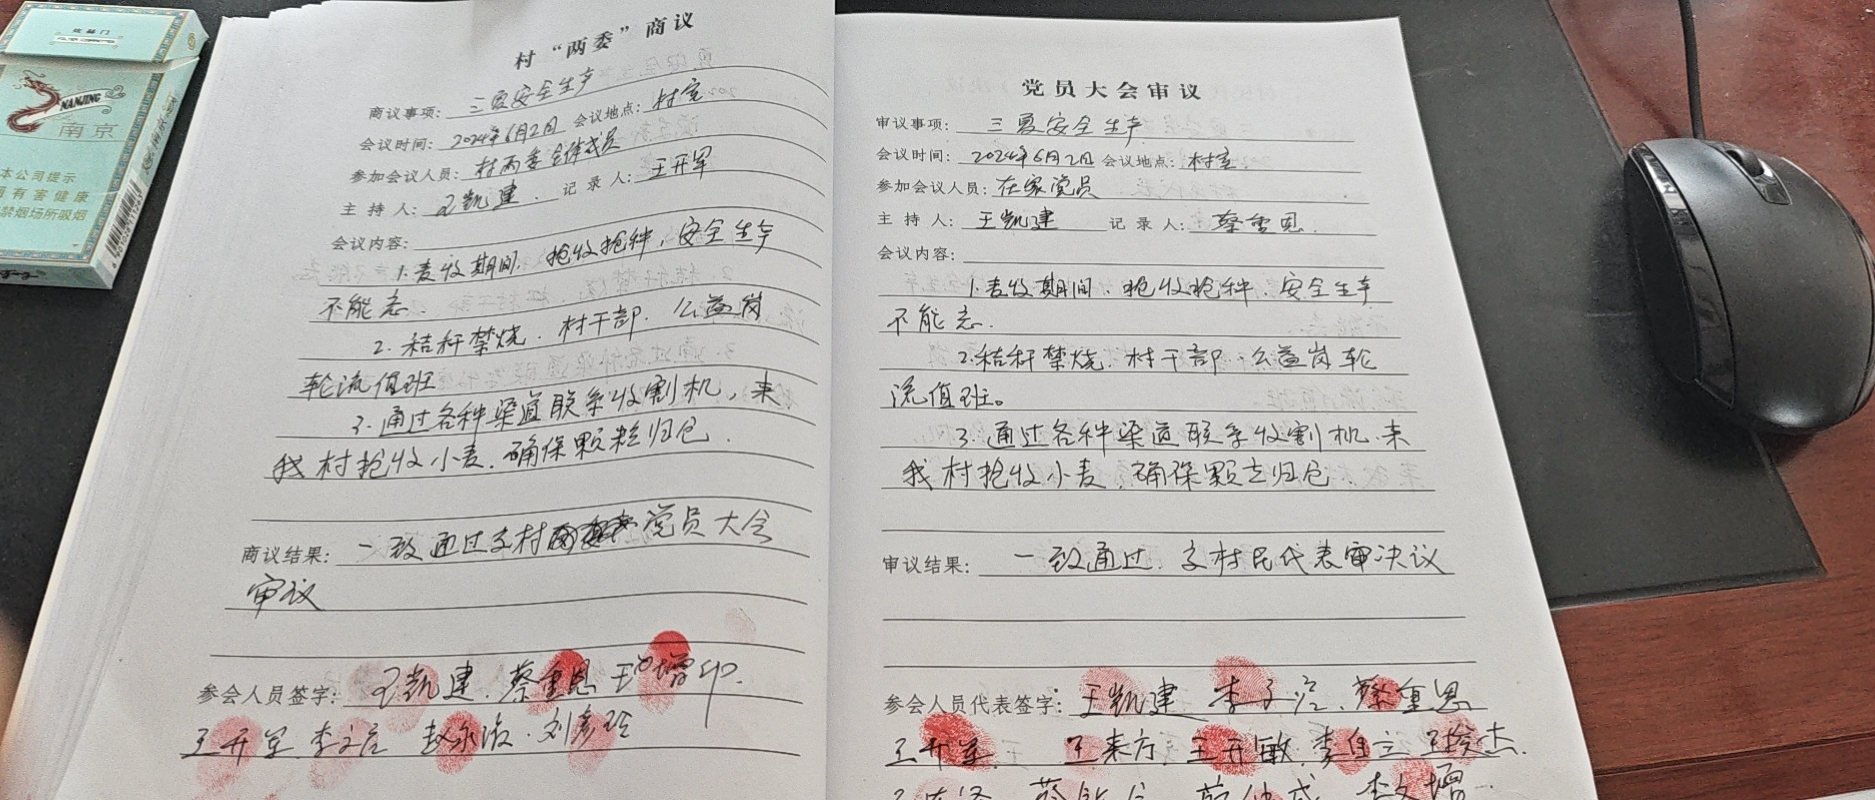 NANJING
南京
本公司提示
有害健康
禁烟场所吸烟
村“两委”商议
商议事项: 三夏安全生产
会议时间: 2024年6月2日 会议地点: 村室
参加会议人员: 村两委全体成员
主 持 人: 王凯建 记 录 人: 王开军
会议内容:
1.麦收期间、抢收抢种,安全生产
不能忘.
2.秸秆禁烧.村干部.公益岗
轮流值班
3.通过各种渠道联系收割机,来
我村抢收小麦.确保颗粒归仓.
商议结果: 一致通过交村党员大会
审议
参会人员签字: 王凯建.蔡重恩
王开军 李文 赵永 刘彦
党员大会审议
审议事项: 三夏安全生产
会议时间: 2024年6月2日 会议地点: 村室.
参加会议人员: 在家党员
主 持 人: 王凯建 记 录 人: 蔡重恩.
会议内容:
1.麦收期间、抢收抢种、安全生产
不能忘.
2.秸秆禁烧.村干部、公益岗轮
流值班。
3.通过各种渠道联系收割机.来
我村抢收小麦.确保颗粒归仓.
审议结果: 一致通过.交村民代表审决议
参会人员代表签字: 王凯建 李 蔡重恩
王开军. 王来方 王开敏 李 王 杰.
蔡 李文增